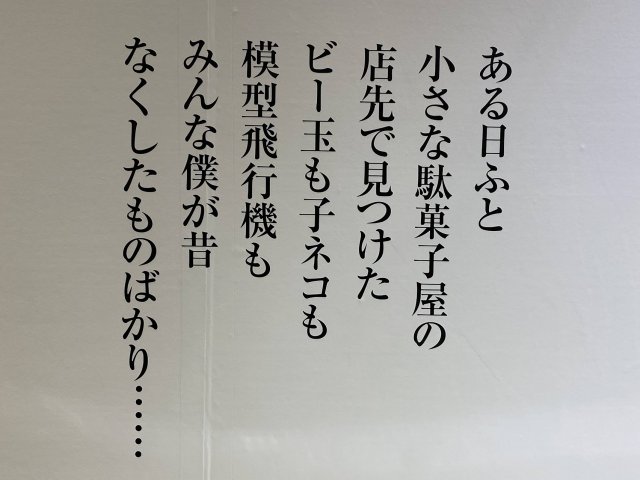 ある日ふと
小さな駄菓子屋の
店先で見つけた
ビー玉も子ネコも
模型飛行機も
みんな僕が昔
なくしたものばかり……